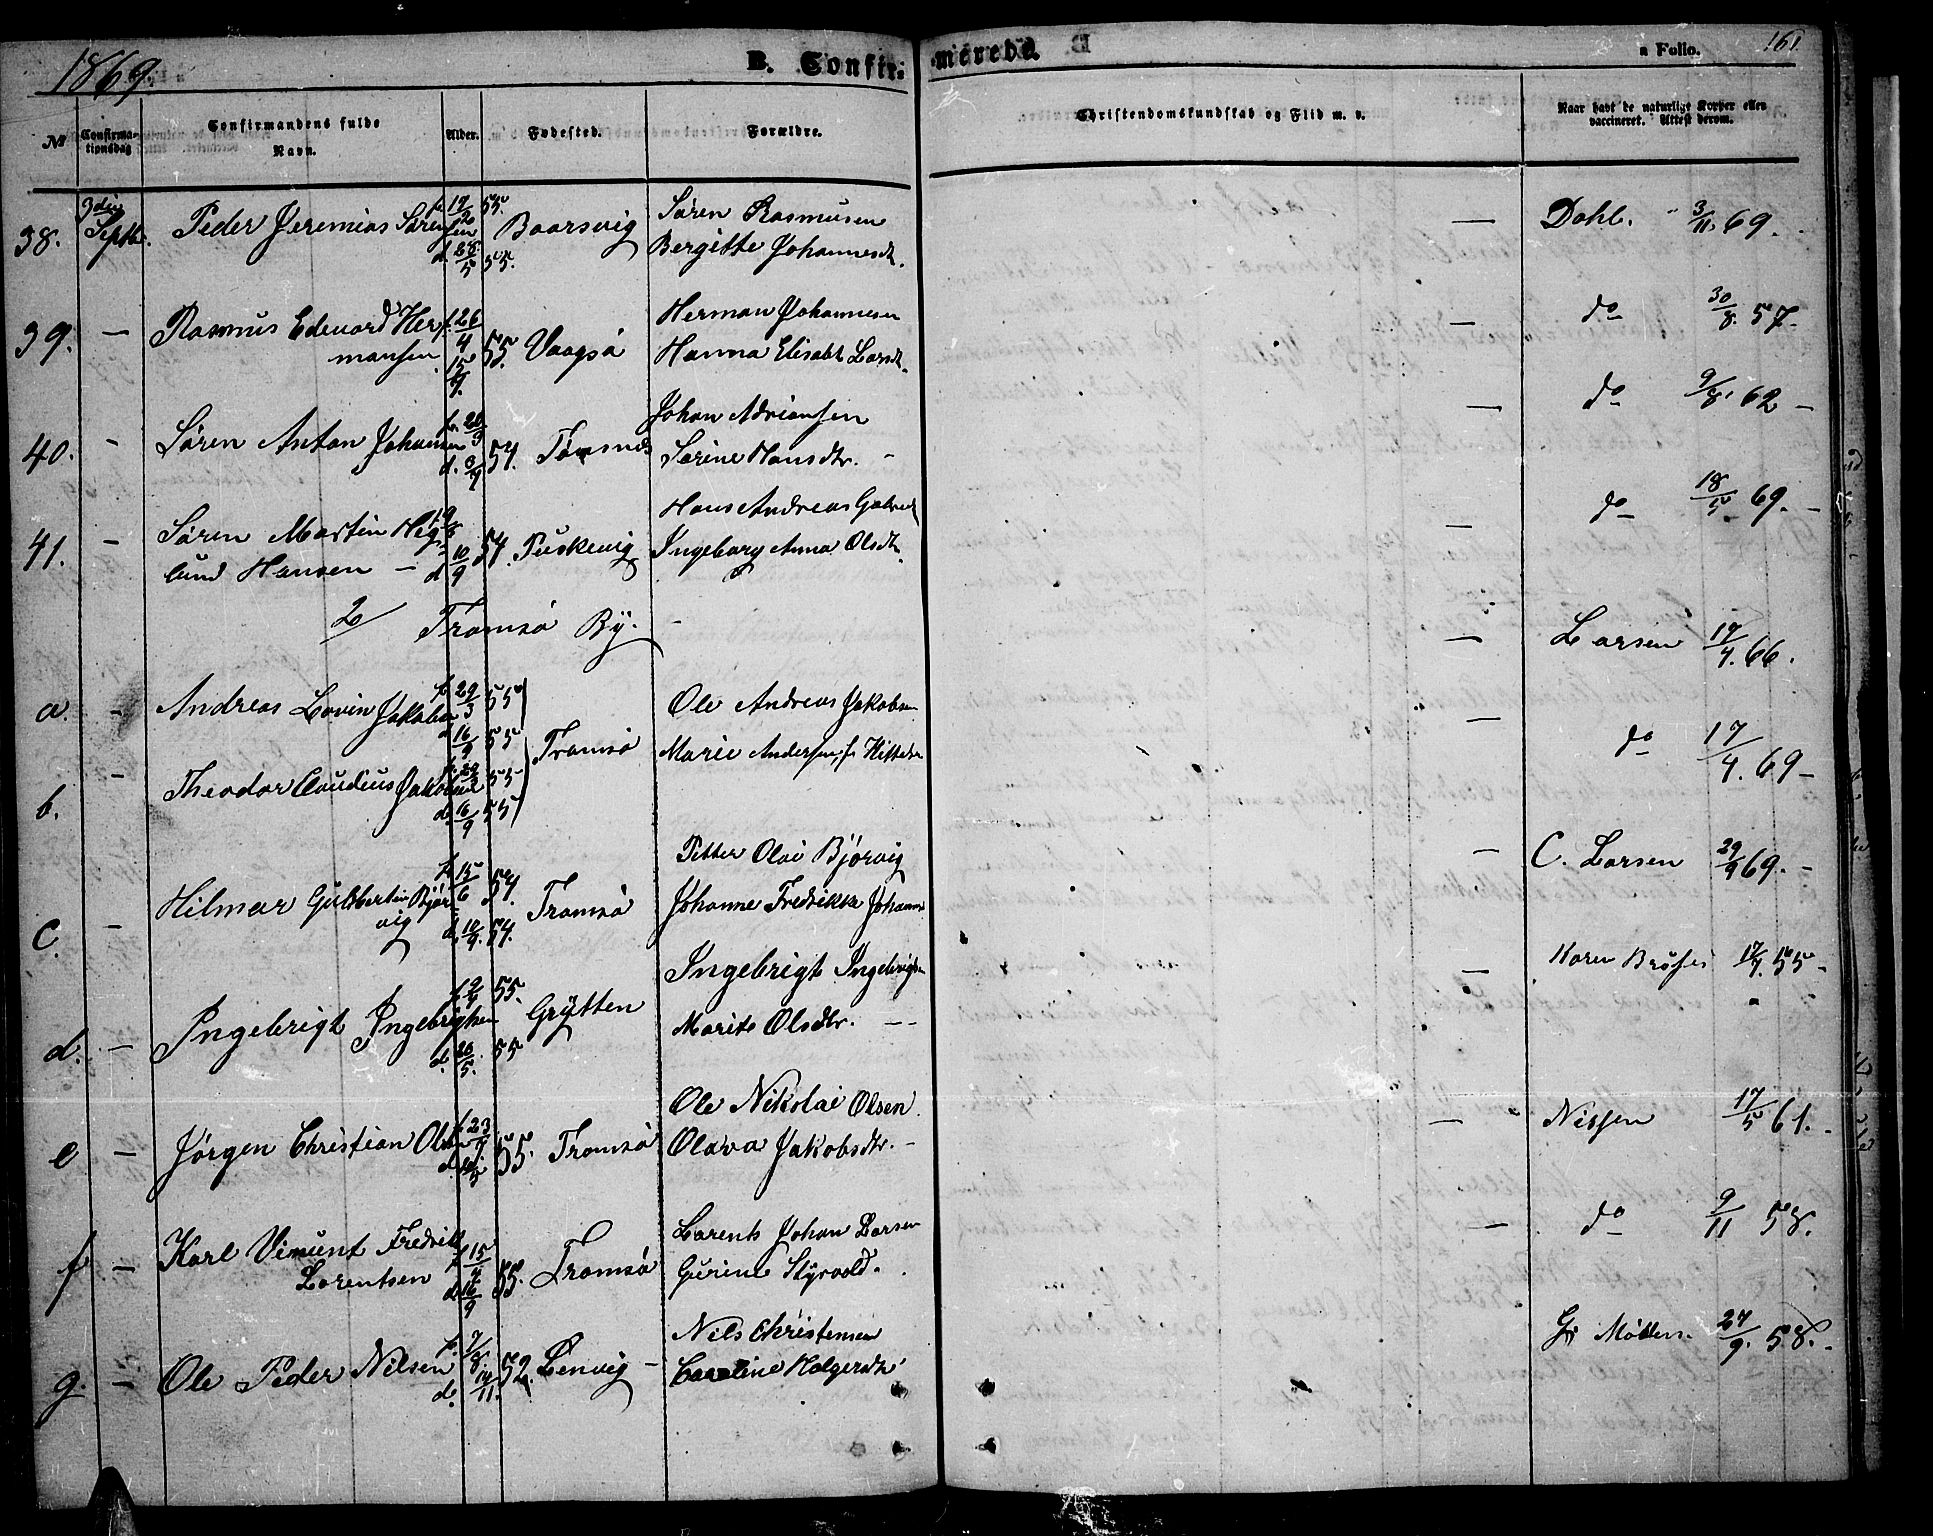 1869.
B. Confir-
merede.
a Folio.
161
№
Confirma-
tionsdag
Confirmandens fulde
Navn.
Alder.
Fødested.
Forældre.
Christendomskundskab og Flid m. v.
Naar havt de naturlige Kopper eller
vaccineret. Attest derom.
38. 3die Septb. Peder Jeremias Sørensen f. 19/2 55. d. 28/5 55. Baarsvig Søren Rasmusen
Bergitte Johannesdt. — Dahl. 3/11 69.
39. — Rasmus Edevard Her-
mansen f. 26/4 15/9. 55. Vaagsø Herman Johannesen
Hanna Elisabt Larsdt. — do 30/8. 57.
40. - Søren Anton Johansen f. 20/3 d. 3/9 54. Tønsnæs Johan Adriansen
Sørine Hansdtr. — do 9/8. 62 —
41. - Søren Martin Heg-
lund Hansen — d 10/9 54. Puskevig Hans Andreas
Ingeborg Anna Olsdtr. — do 18/5 69. —
2/ Tromsø By. —
a. — Andreas Lovin Jakobsen f. 29/3 55 d. 16/9 55 Tromsø Ole Andreas Jakobsen
Marie Andersen, f. — Larsen 17/4. 66.
b. — Theodor Claudius Jakobsen f. 29/3 55 d. 16/9 55 — do 17/4. 69 —
C. — Hilmar Gulbertin Bjør-
vig f. 15/6 54. d. 10/9. 54. Tromsø Petter Olai Bjørvig
Johanne Fredrikke — C. Larsen 29/9 69. —
d. — Ingebrigt Ingebrigtsen 55. d. 20/5. 55 Grÿtten Ingebrigt Ingebrigtsen
Marite Olsdtr. — — Karen 17/7. 55 —
e — Jørgen Christian Olsen f. 23 55. Tromsø Ole Nikolai Olsen.
Olava Jakobsdtr. — — Nissen 17/5 61. —
f — Karl Vimunt Fredrik
Lorentsen f. 15/4 d. 16/9 55. Tromsø Lorents Johan Larsen
Gurine Styrvold. — do 9/11 58.
g. — Ole Peder Nilsen f. 7/8. d. 14/11. 52. Lenvig — Nils Christensen
Caroline Holgersdtr Møller. 27/9. 58. —